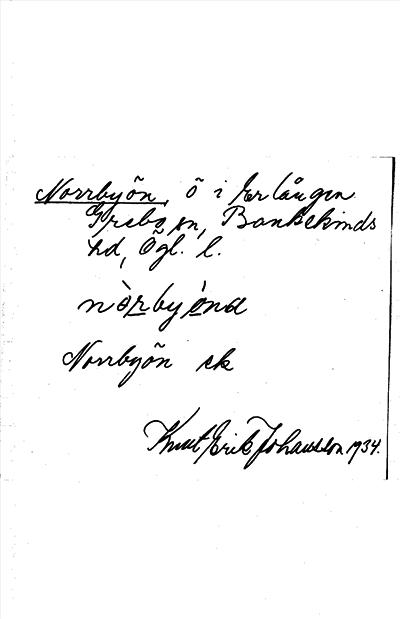 Norrbyön, ö i Erlången
Grebo sn, Bankekinds
hd, Ögl. l.
nòrbyö̀na
Norrbyön ek
Knut Erik Johansson 1934.